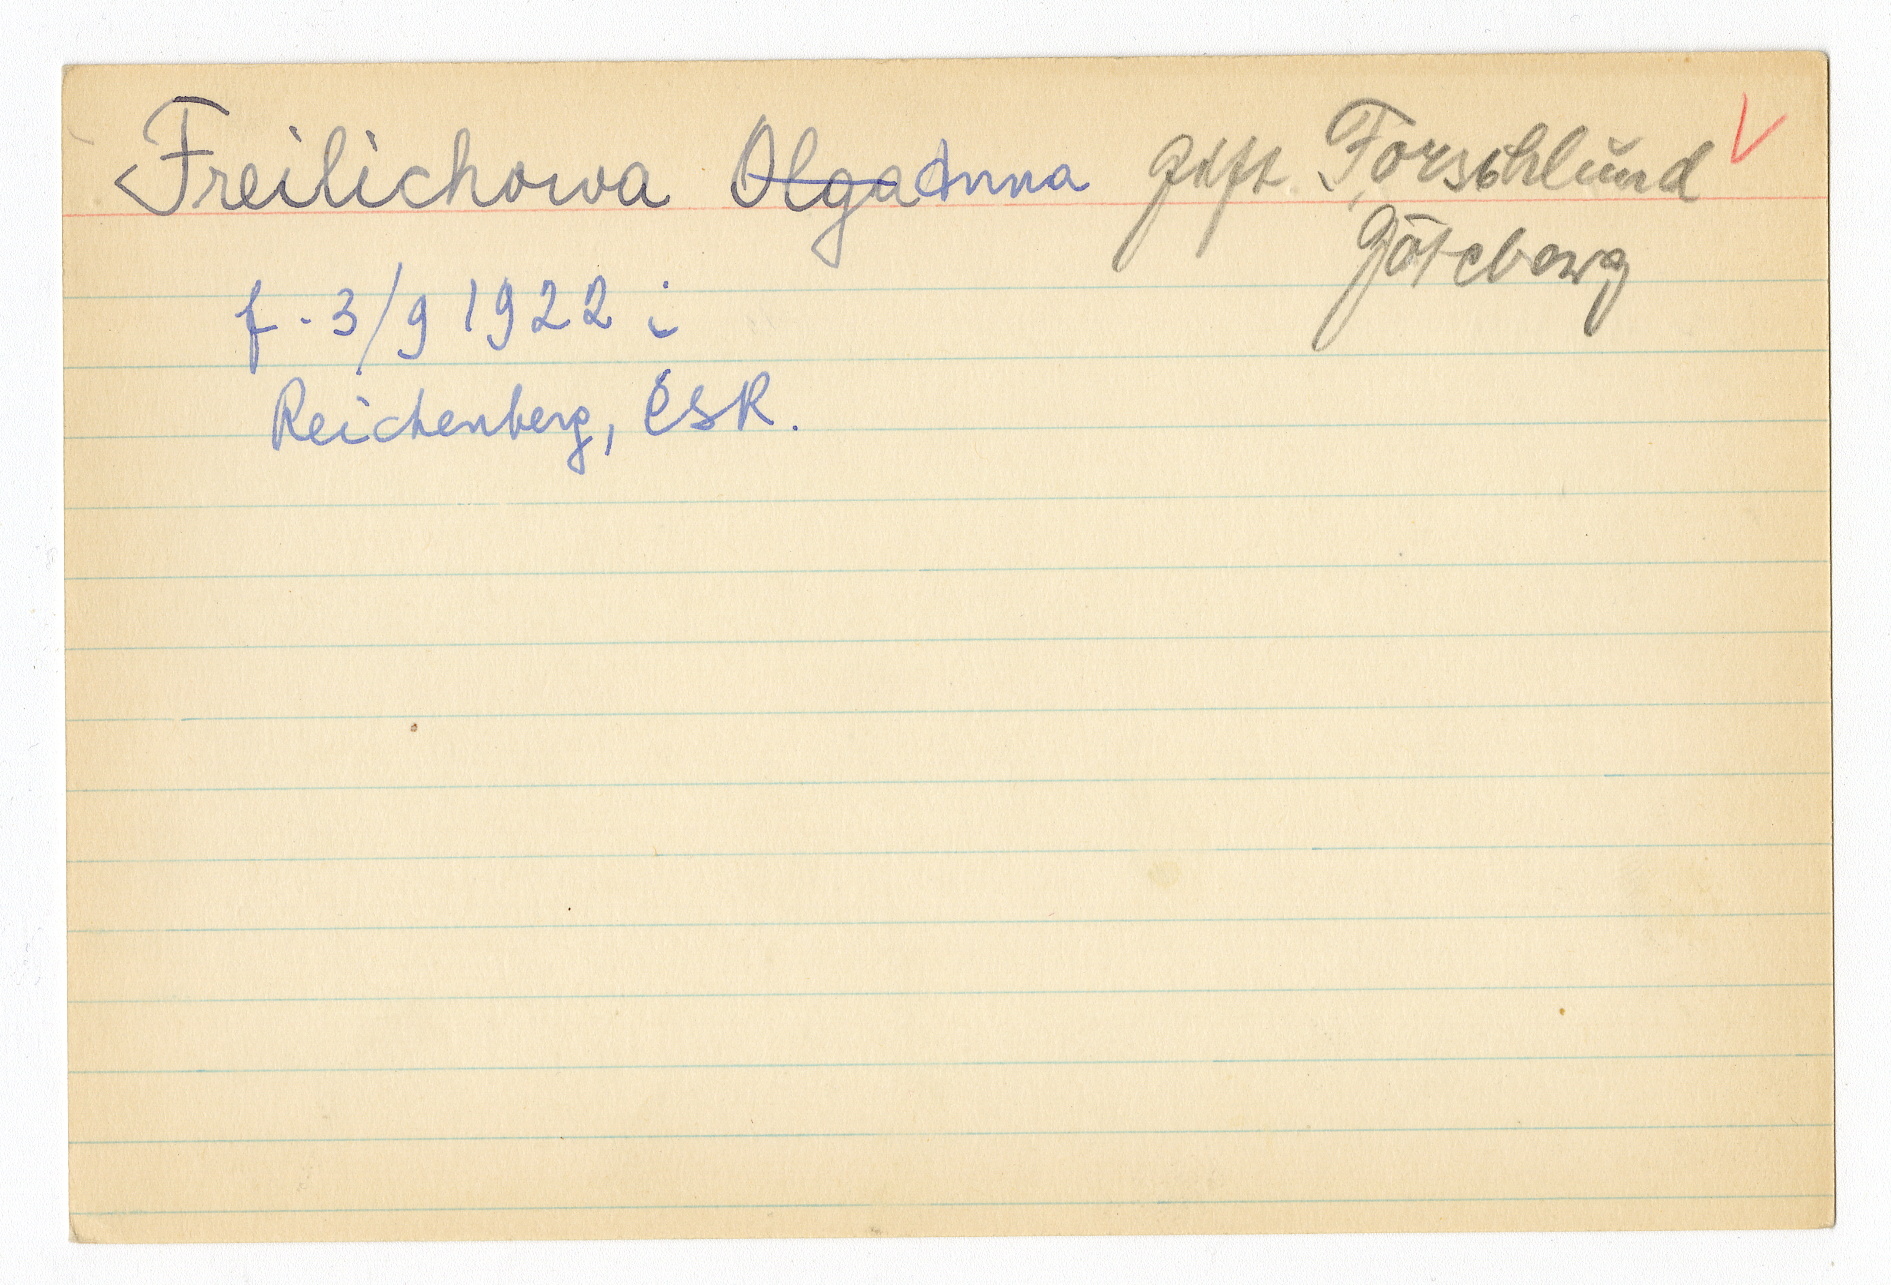 Freilichowa Olga Anna gift. Forschlund
Göteborg
f. 3/9 1922 i
Reichenberg, ČSR.